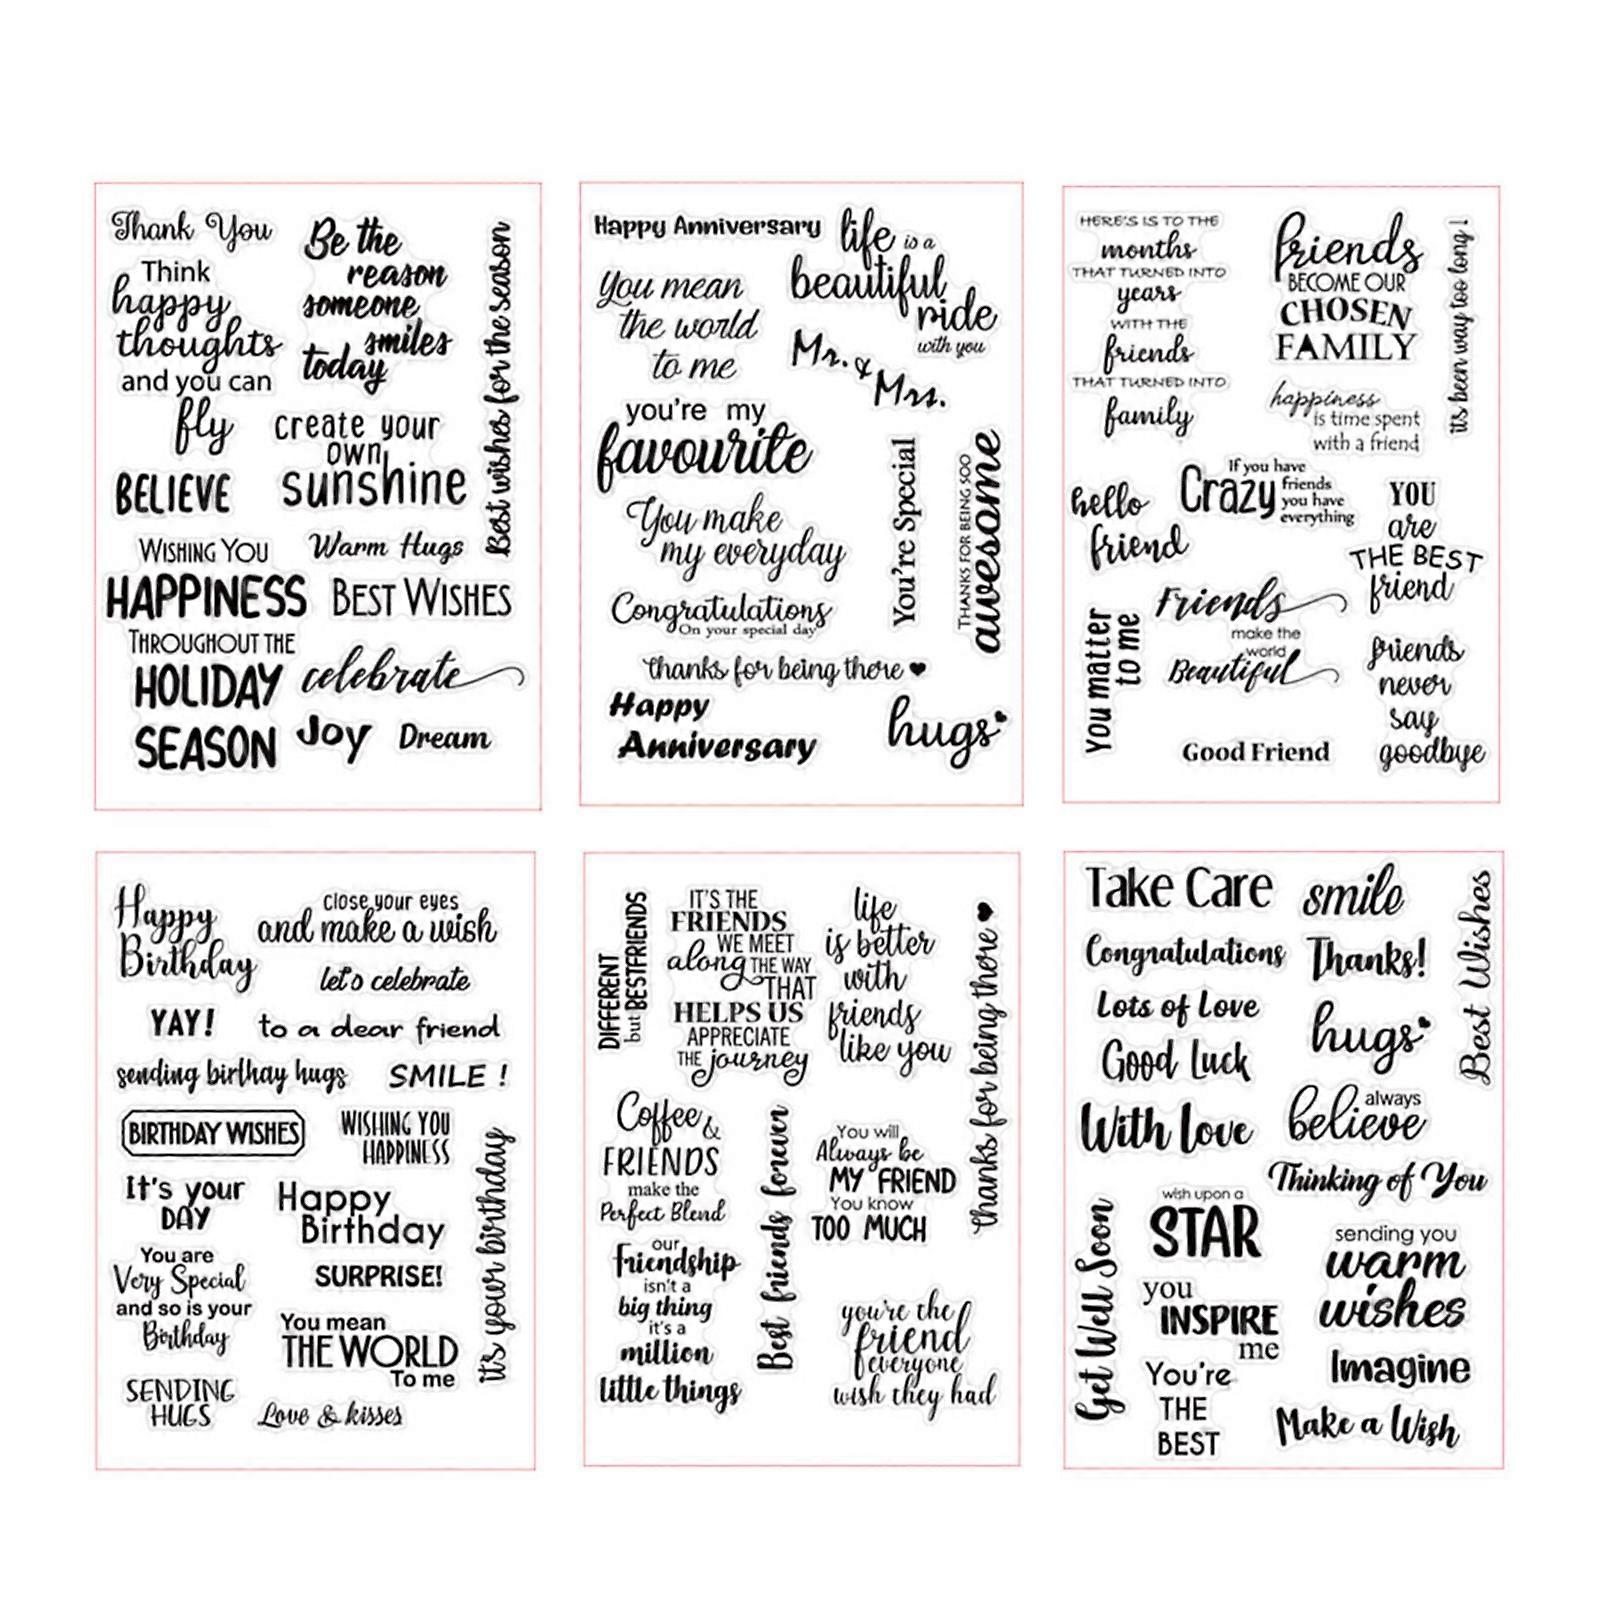 Thank You
Think
happy
thoughts
and you can
fly
BELIEVE
WISHING YOU
HAPPINESS
THROUGHOUT THE
HOLIDAY
SEASON
Be the
reason
someone
smiles
today
create your
own
sunshine
Warm Hugs
BEST WISHES
celebrate
Joy
Dream
Best wishes for the season
Happy Anniversary
You mean
the world
to me
you're my
favourite
You make
my everyday
Congratulations
On your special day
thanks for being there
Happy
Anniversary
life is a
beautiful
ride
with you
Mr. & Mrs.
You're Special
THANKS FOR BEING SOO
awesome
hugs
HERE'S IS TO THE
months
THAT TURNED INTO
years
WITH THE
friends
THAT TURNED INTO
family
friends
BECOME OUR
CHOSEN
FAMILY
its been way too long !
happiness
is time spent
with a friend
hello
friend
If you have
Crazy friends
you have
everything
YOU
are
THE BEST
friend
Friends
make the
world
Beautiful
You matter
to me
friends
never
say
goodbye
Good Friend
Happy
Birthday
close your eyes
and make a wish
let's celebrate
YAY!
to a dear friend
sending birthay hugs
SMILE !
BIRTHDAY WISHES
WISHING YOU
HAPPINESS
It's your
DAY
Happy
Birthday
You are
Very Special
and so is your
Birthday
SURPRISE!
You mean
THE WORLD
To me
SENDING
HUGS
Love & kisses
it's your birthday
DIFFERENT
but BESTFRIENDS
IT'S THE
FRIENDS
WE MEET
along THE WAY
THAT
HELPS US
APPRECIATE
THE journey
life
is better
with
friends
like you
thanks for being there
Coffee &
FRIENDS
make the
Perfect Blend
our
friendship
isn't a
big thing
it's a
million
little things
Best friends forever
You will
Always be
MY FRIEND
You know
TOO MUCH
you're the
friend
everyone
wish they had
Take Care
smile
Congratulations
Thanks!
Lots of Love
hugs
Good Luck
Best Wishes
With love
always
believe
Thinking of You
wish upon a
STAR
Get Well Soon
you
INSPIRE
me
You're
THE
BEST
sending you
warm
wishes
Imagine
Make a Wish